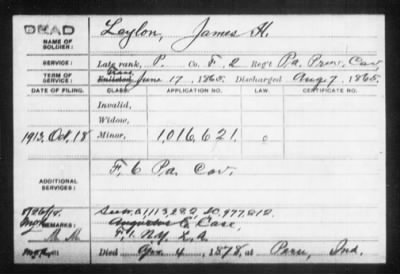 DEAD
NAME OF SOLDIER: Laylon, James H.
SERVICE: Late rank, P. Co. F. 2 Reg't Pa. Prov. Cav
TERM OF SERVICE: Enlisted June 17, 1865. Discharged Aug 7, 1865.
DATE OF FILING. CLASS. APPLICATION NO. LAW. CERTIFICATE NO.
Invalid,
Widow,
1913, Oct. 18 Minor, 1,016,621. o
ADDITIONAL SERVICES: F. 6 Pa. Cav.
REMARKS:
Augustus C. Case,
Died 4, 1878, at Peru, Ind.